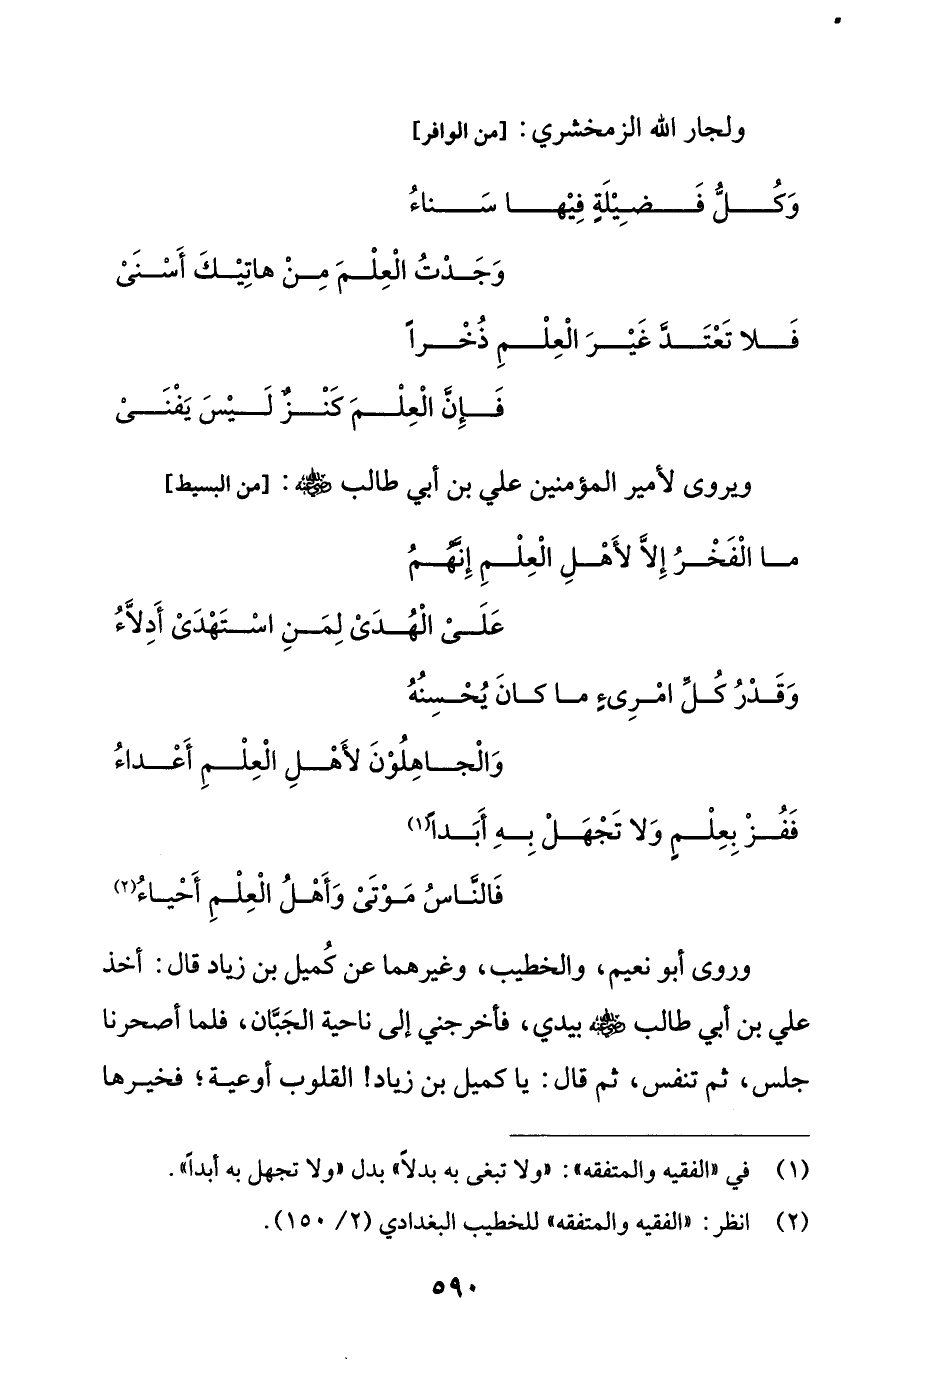 ولجار الله الزمخشري: [من الوافر]
وَكُلُّ فَضِيْلَةٍ فِيْها سَناءُ
وَجَدْتُ الْعِلْمَ مِنْ هاتِيْكَ أَسْنَىْ
فَلا تَعْتَدَّ غَيْرَ الْعِلْمِ ذُخْراً
فَإِنَّ الْعِلْمَ كَنْزٌ لَيْسَ يَفْنَىْ
ويروى لأمير المؤمنين علي بن أبي طالب رضي الله عنه: [من البسيط]
ما الْفَخْرُ إِلاَّ لأَهْلِ الْعِلْمِ إِنَّهُمُ
عَلَىْ الْهُدَىْ لِمَنِ اسْتَهْدَىْ أَدِلاَّءُ
وَقَدْرُ كُلِّ امْرِىءٍ ما كانَ يُحْسِنُهُ
وَالْجاهِلُوْنَ لأَهْلِ الْعِلْمِ أَعْداءُ
فَفُزْ بِعِلْمٍ وَلا تَجْهَلْ بِهِ أَبَداً(١)
فَالنَّاسُ مَوْتَىْ وَأَهْلُ الْعِلْمِ أَحْياءُ(٢)
وروى أبو نعيم، والخطيب، وغيرهما عن كُميل بن زياد قال: أخذ
علي بن أبي طالب رضي الله عنه بيدي، فأخرجني إلى ناحية الجَبَّان، فلما أصحرنا
جلس، ثم تنفس، ثم قال: يا كميل بن زياد! القلوب أوعية؛ فخيرها
(١) في «الفقيه والمتفقه»: «ولا تبغى به بدلاً» بدل «ولا تجهل به أبداً».
(٢) انظر: «الفقيه والمتفقه» للخطيب البغدادي (٢/ ١٥٠).
٥٩٠